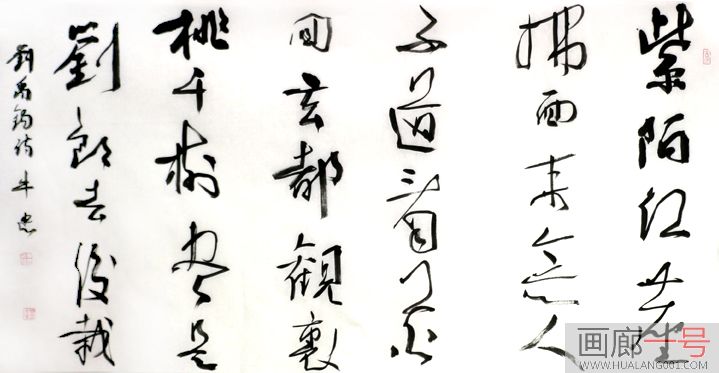 紫陌紅塵
拂面来無人
不道看花
回玄都觀裏
桃千樹盡是
劉郎去後栽
劉禹錫詩 牛忠
画廊一号
WWW.HUALANG001.COM